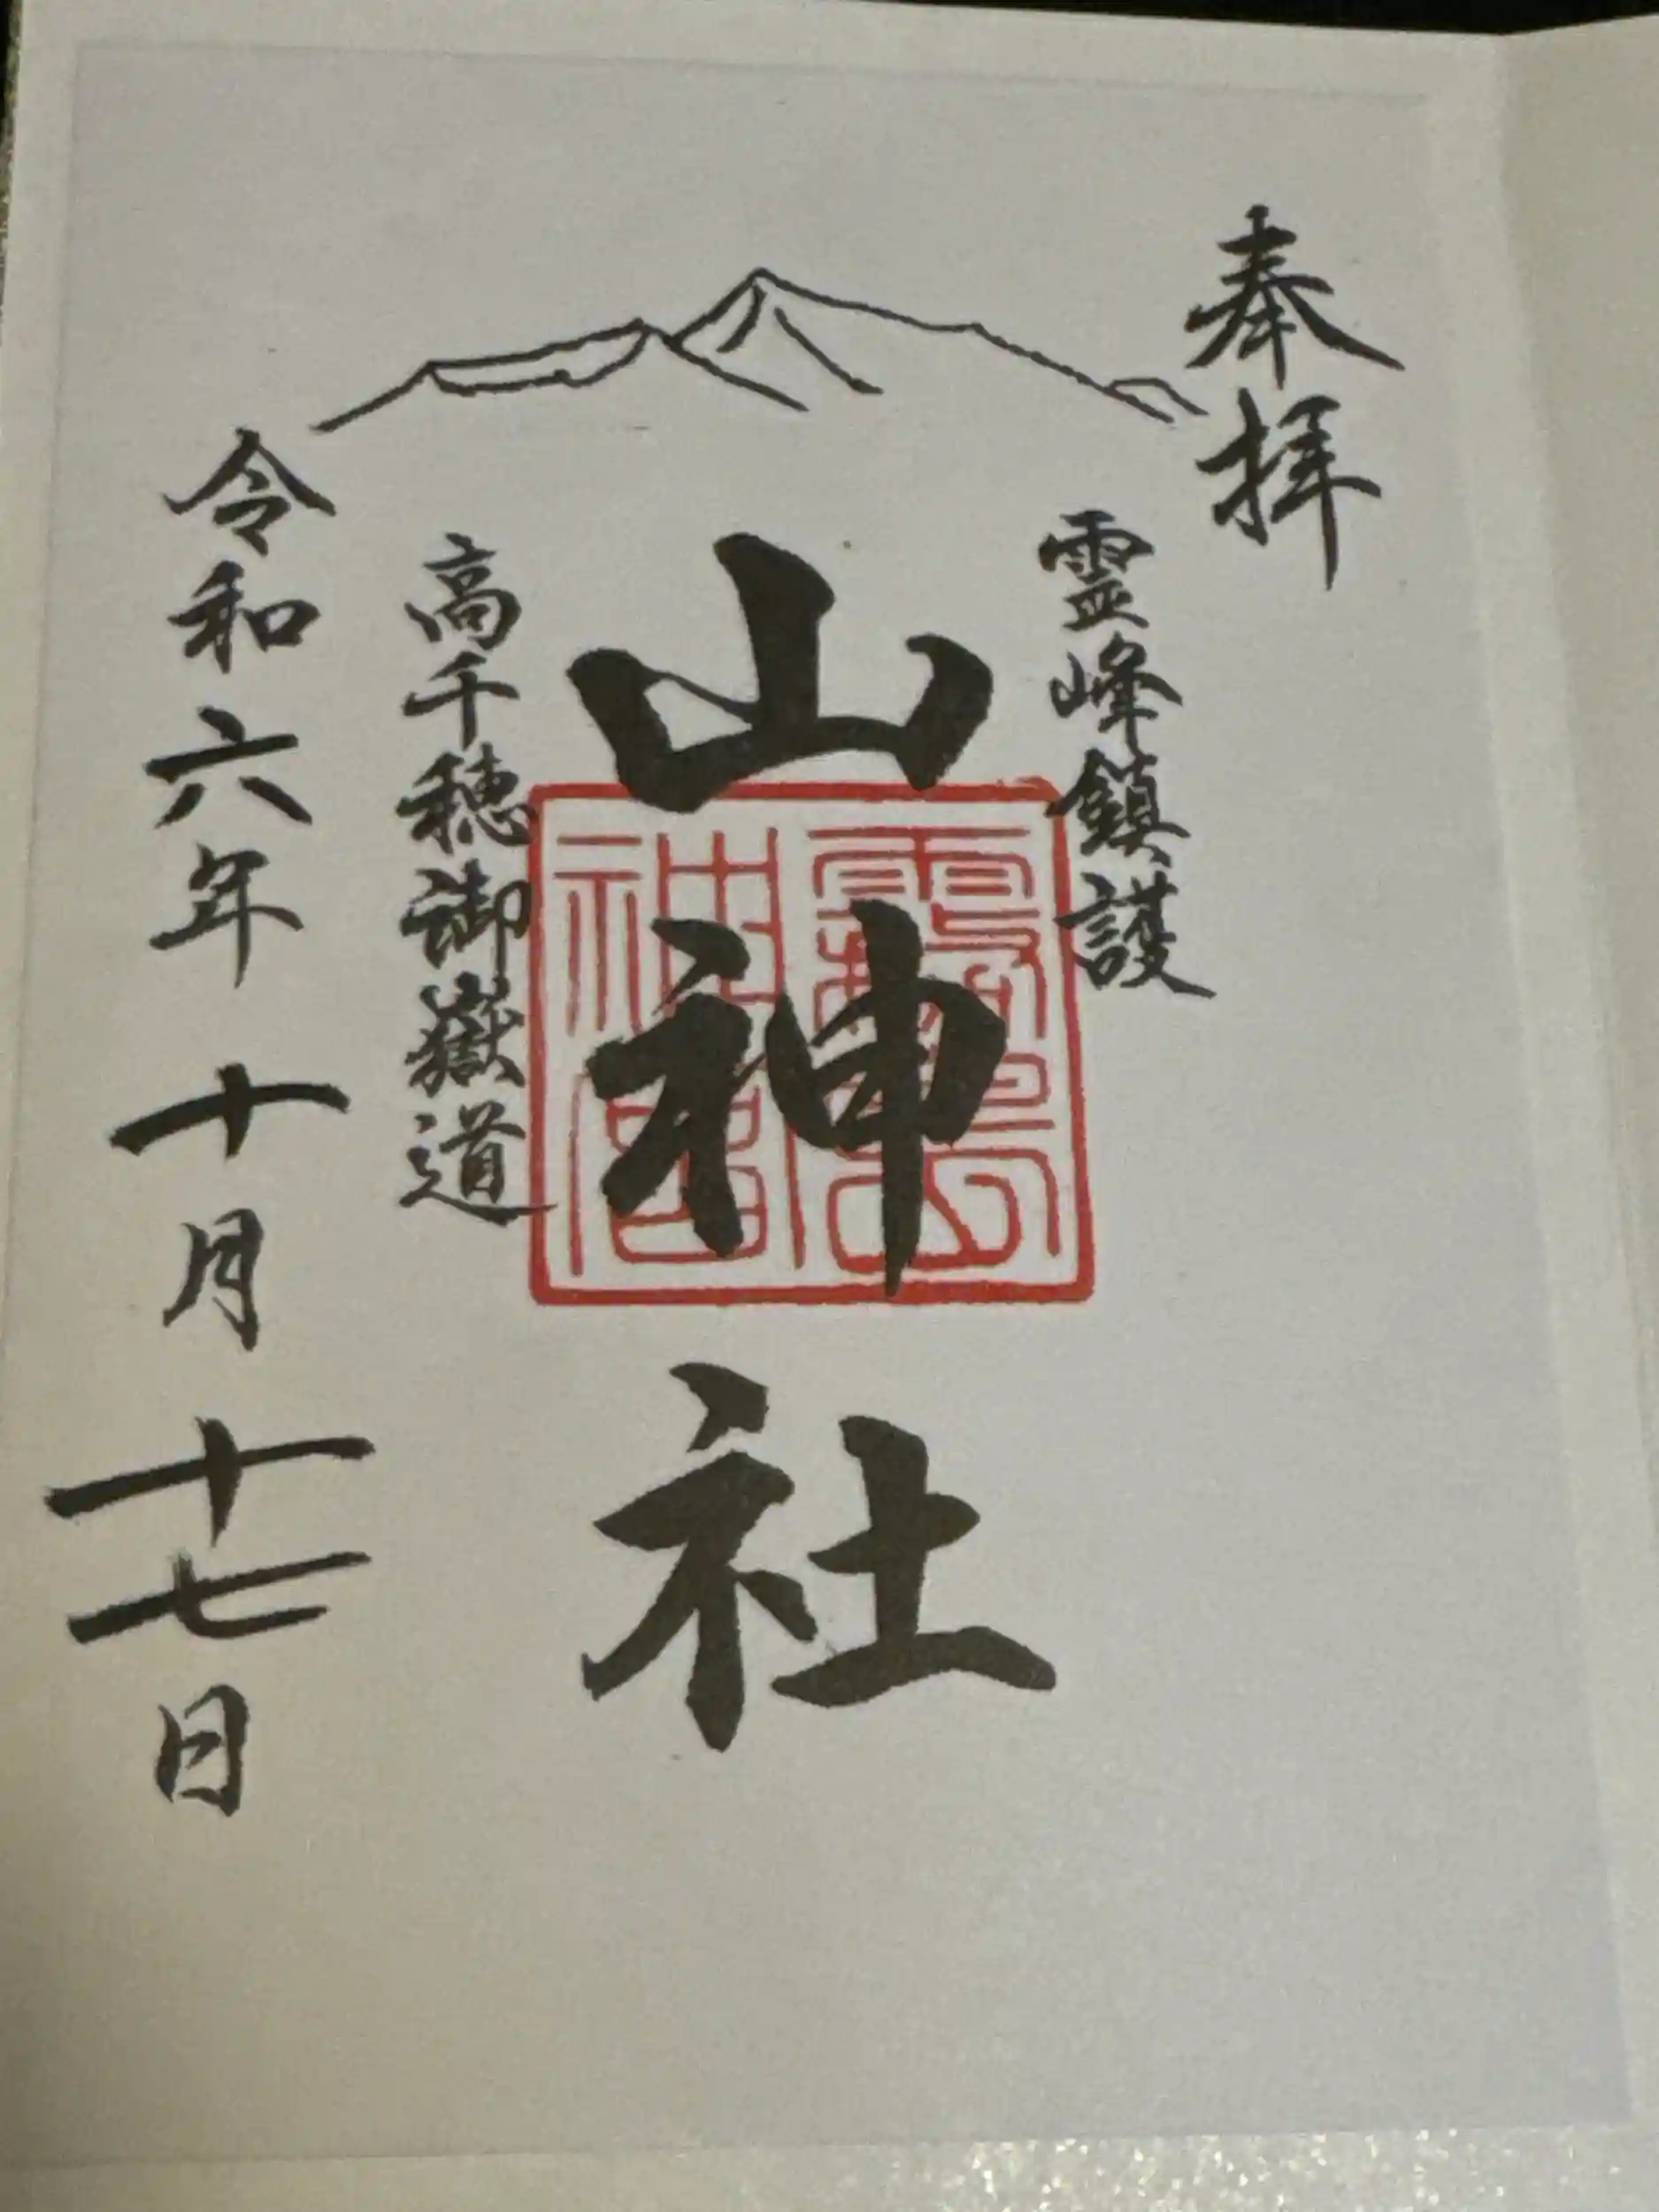 奉拝
霊峰鎮護
山神社
高千穂御嶽道
令和六年十月十七日
霧島
神宮